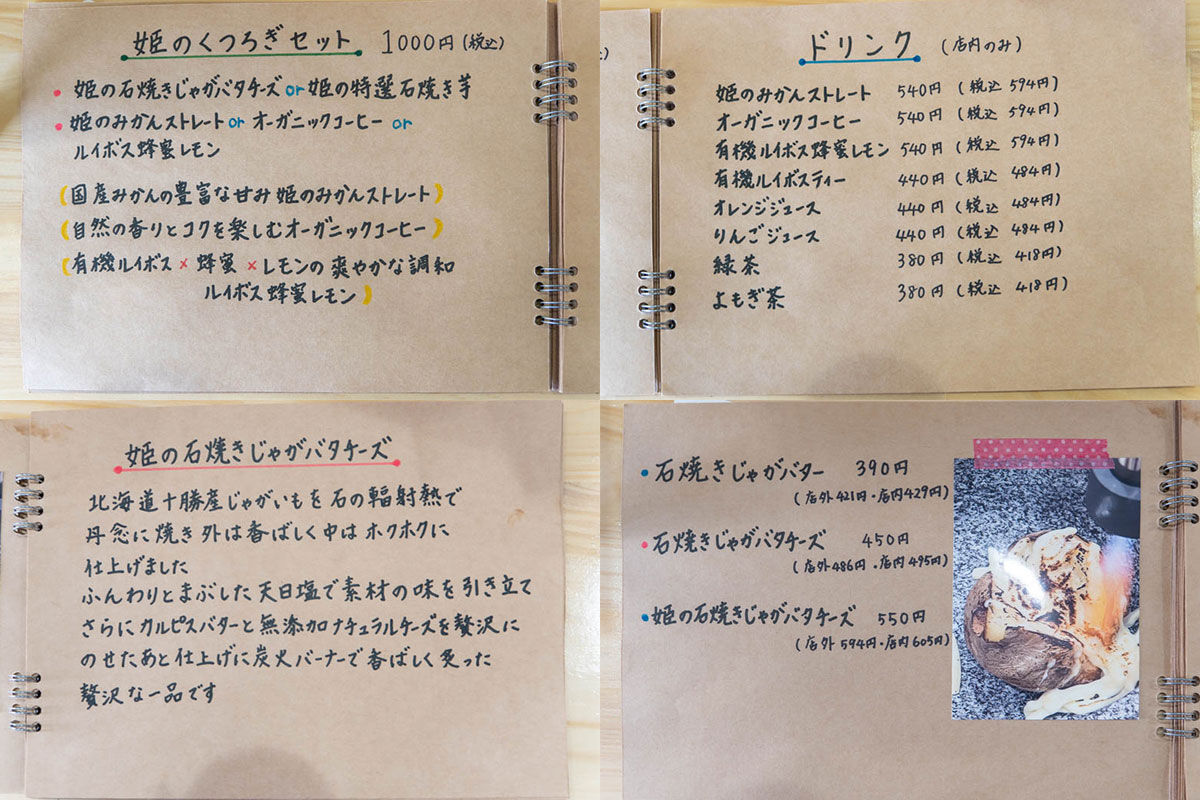 姫のくつろぎセット 1000円(税込)
• 姫の石焼きじゃがバタチーズor姫の特選石焼き芋
• 姫のみかんストレートor オーガニックコーヒー or
ルイボス蜂蜜レモン
(国産みかんの豊富な甘み 姫のみかんストレート)
(自然の香りとコクを楽しむオーガニックコーヒー)
(有機ルイボス × 蜂蜜 × レモンの爽やかな調和
ルイボス蜂蜜レモン)
ドリンク (店内のみ)
姫のみかんストレート 540円 (税込 594円)
オーガニックコーヒー 540円 (税込 594円)
有機ルイボス蜂蜜レモン 540円 (税込 594円)
有機ルイボスティー 440円 (税込 484円)
オレンジジュース 440円 (税込 484円)
りんごジュース 440円 (税込 484円)
緑茶 380円 (税込 418円)
よもぎ茶 380円 (税込 418円)
姫の石焼きじゃがバタチーズ
北海道十勝産じゃがいもを石の輻射熱で
丹念に焼き外は香ばしく中はホクホクに
仕上げました
ふんわりとまぶした天日塩で素材の味を引き立て
さらにカルピスバターと無添加ナチュラルチーズを贅沢に
のせたあと仕上げに炭火バーナーで香ばしく炙った
贅沢な一品です
• 石焼きじゃがバター 390円
(店外421円・店内429円)
• 石焼きじゃがバタチーズ 450円
(店外486円・店内495円)
• 姫の石焼きじゃがバタチーズ 550円
(店外594円・店内605円)